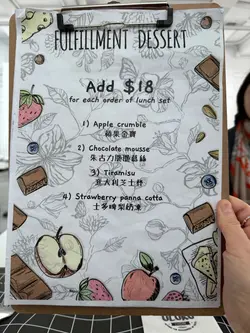 FULFILLMENT DESSERT
Add $18
for each order of lunch set
1) Apple crumble
蘋果金寶
2) Chocolate mousse
朱古力
3) Tiramisu
意大利芝士杯
4) Strawberry panna cotta
士多啤梨奶凍